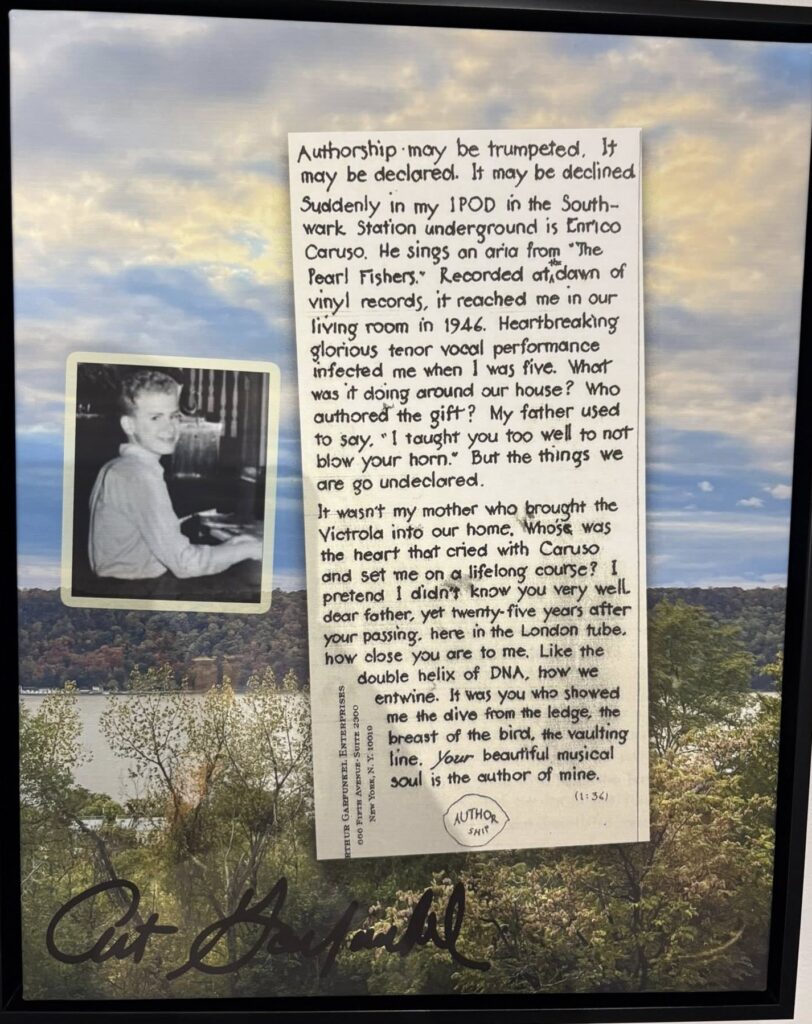 Authorship may be trumpeted. It
may be declared. It may be declined
Suddenly in my IPOD in the South-
wark Station underground is Enrico
Caruso. He sings an aria from "The
Pearl Fishers." Recorded at the dawn of
vinyl records, it reached me in our
living room in 1946. Heartbreaking
glorious tenor vocal performance
infected me when I was five. What
was it doing around our house? Who
authored the gift? My father used
to say, "I taught you too well to not
blow your horn." But the things we
are go undeclared.
It wasn't my mother who brought the
Victrola into our home. Whose was
the heart that cried with Caruso
and set me on a lifelong course? I
pretend I didn't know you very well,
dear father, yet twenty-five years after
your passing, here in the London tube,
how close you are to me. Like the
double helix of DNA, how we
entwine. It was you who showed
me the dive from the ledge, the
breast of the bird, the vaulting
line. Your beautiful musical
soul is the author of mine.
(1:36)
AUTHOR
SHIP
RTHUR GARFUNKEL ENTERPRISES
600 FIFTH AVENUE·SUITE 2300
NEW YORK, N. Y. 10019
Art Garfunkel